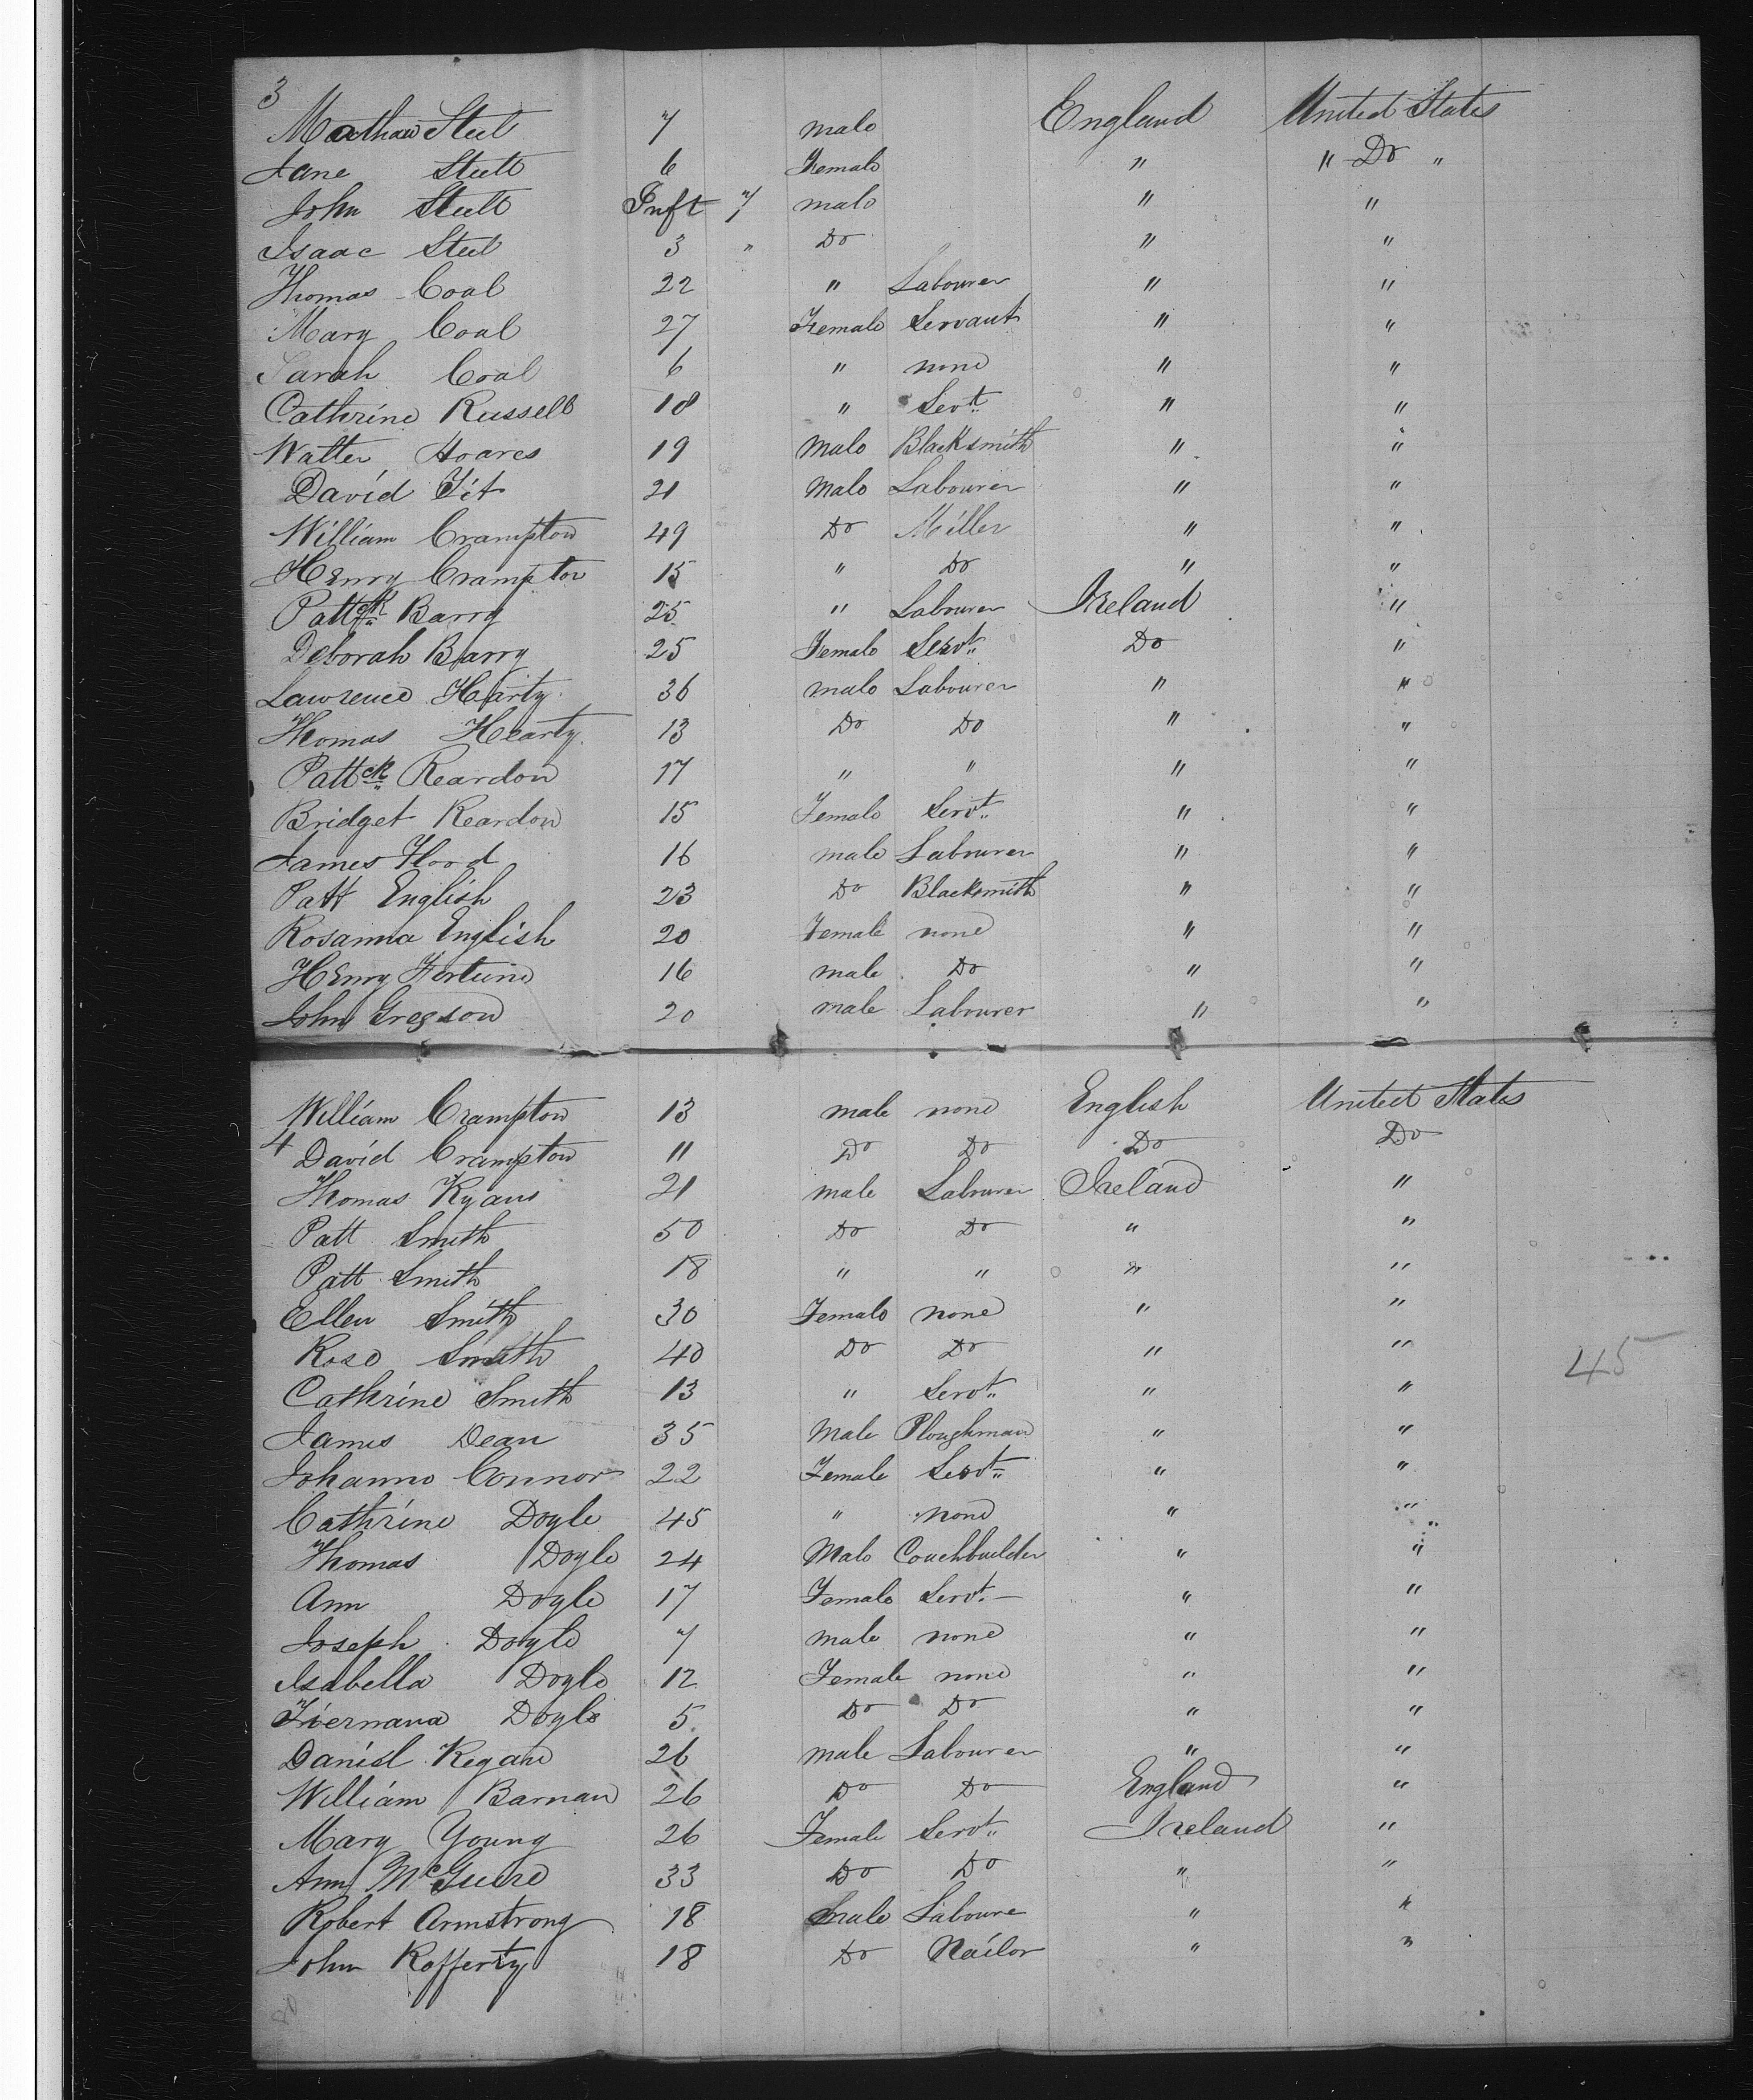 3
Mathaw Steel 7 male England United States
Jane Steele 6 Female " " Do "
John Steele Inft 7 male " "
Isaac Steel 3 " Do " "
Thomas Coal 22 " Labourer " "
Mary Coal 27 Female Servant " "
Sarah Coal 6 " none " "
Cathrine Russell 18 " Servt " "
Walter Hoares 19 Male Blacksmith " "
David Tit 21 Male Labourer " "
William Crampton 49 Do Miller " "
Henry Crampton 15 " Do " "
Pattck Barry 25 " Labourer Ireland "
Deborah Barry 25 Female Servt Do "
Lawrence Harty 36 male Labourer " "
Thomas Hearty 13 Do Do " "
Pattck Reardon 17 " " " "
Bridget Reardon 15 Female Servt " "
James Flood 16 male Labourer " "
Patt English 23 Do Blacksmith " "
Rosanna English 20 Female none " "
Henry Fortune 16 male Do " "
John Gregson 20 male Labourer " "
William Crampton 13 male none English United States
4 David Crampton 11 Do Do Do Do
Thomas Ryans 21 male Labourer Ireland "
Patt Smith 50 Do Do " "
Patt Smith 18 " " " "
Ellen Smith 30 Female none " "
Rose Smith 40 Do Do " " 45
Cathrine Smith 13 " Servt " "
James Dean 35 Male Ploughman " "
Johanno Connor 22 Female Servt " "
Cathrine Doyle 45 " none " "
Thomas Doyle 24 Male Coachbuilder " "
Ann Doyle 17 Female Servt " "
Joseph Doyle 7 male none " "
Isabella Doyle 12 Female none " "
Doyle 5 Do Do " "
Daniel Regan 26 male Labourer " "
William Barnan 26 Do Do England "
Mary Young 26 Female Servt Ireland "
Ann McGuire 33 Do Do " "
Robert Armstrong 18 male Laboure " "
John Rafferty 18 Do Nailor " "